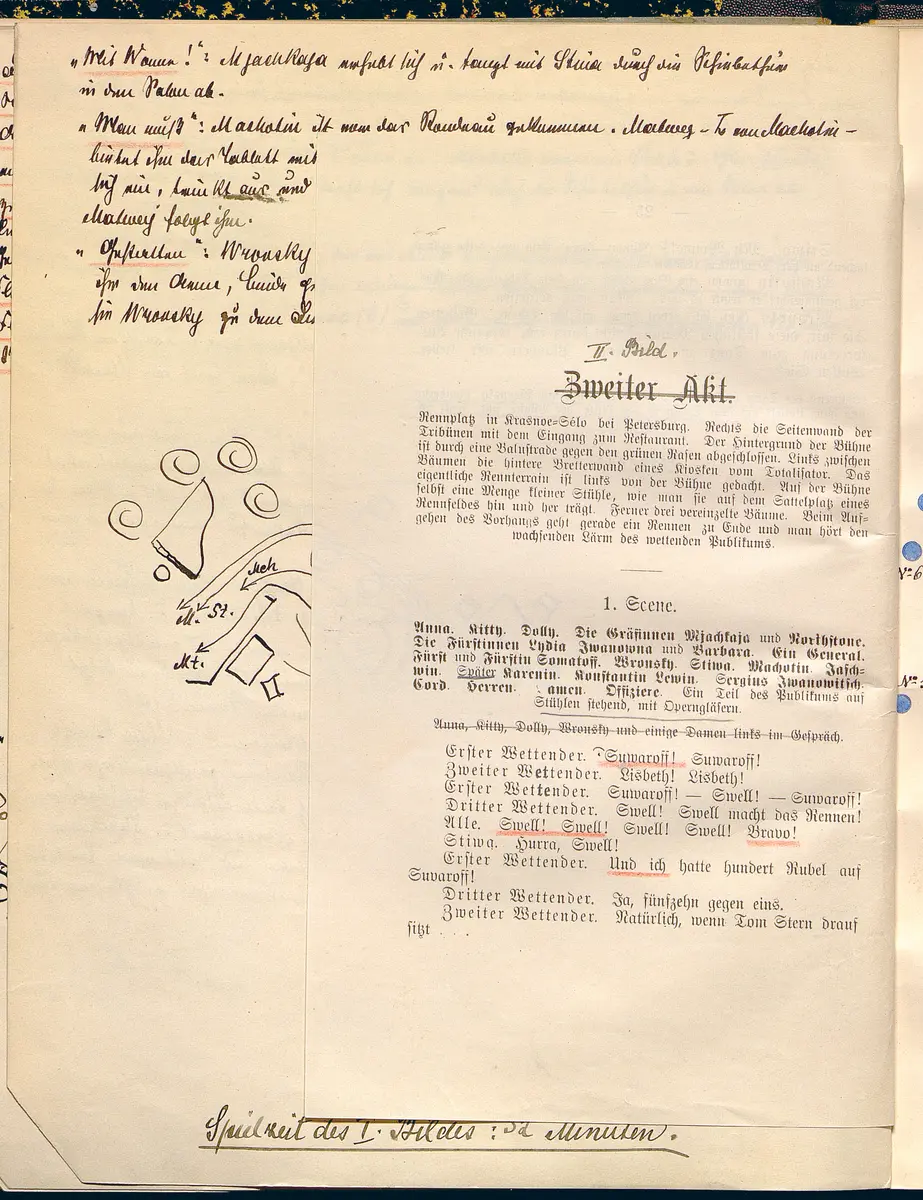 „Mit Wonne!“: Mjachkaja erhebt sich u. tanzt mit Stiwa durch die Schiebethür
in den Salon ab.
„Man muß“: Machotin ist von das Rondeau gekommen. Matweg – von Machotin –
bietet ihm das Tablett mit
sich ein, trinkt aus und
Matwej folgt ihm.
„Gestatten“: Wronsky
ihr den Arme, beide
sie Wronsky zu dem
Mch
M. St.
Mt.
II. Bild.
Zweiter Akt.
Rennplatz in Krasnoe-Sélo bei Petersburg. Rechts die Seitenwand der
Tribünen mit dem Eingang zum Restaurant. Der Hintergrund der Bühne
ist durch eine Balustrade gegen den grünen Rasen abgeschlossen. Links zwischen
Bäumen die hintere Bretterwand eines Kiosken vom Totalisator. Das
eigentliche Rennterrain ist links von der Bühne gedacht. Auf der Bühne
selbst eine Menge kleiner Stühle, wie man sie auf dem Sattelplatz eines
Rennfeldes hin und her trägt. Ferner drei vereinzelte Bäume. Beim Auf-
gehen des Vorhangs geht gerade ein Rennen zu Ende und man hört den
wachsenden Lärm des wettenden Publikums.
1. Scene.
Anna. Kitty. Dolly. Die Gräfinnen Mjachkaja und Northstone.
Die Fürstinnen Lydia Iwanowna und Barbara. Ein General.
Fürst und Fürstin Somatoff. Wronsky. Stiwa. Machotin. Jasch-
win. Später Karenin. Konstantin Lewin. Sergius Iwanowitsch.
Cord. Herren. amen. Offiziere. Ein Teil des Publikums auf
Stühlen stehend, mit Operngläsern.
Anna, Kitty, Dolly, Wronsky und einige Damen links im Gespräch.
Erster Wettender. Suwaroff! Suwaroff!
Zweiter Wettender. Lisbeth! Lisbeth!
Erster Wettender. Suwaroff! — Swell! — Suwaroff!
Dritter Wettender. Swell! Swell macht das Rennen!
Alle. Swell! Swell! Swell! Swell! Bravo!
Stiwa. Hurra, Swell!
Erster Wettender. Und ich hatte hundert Rubel auf
Suvaroff!
Dritter Wettender. Ja, fünfzehn gegen eins.
Zweiter Wettender. Natürlich, wenn Tom Stern drauf
sitzt . . .
Spielzeit des I. Bildes: 32 Minuten.